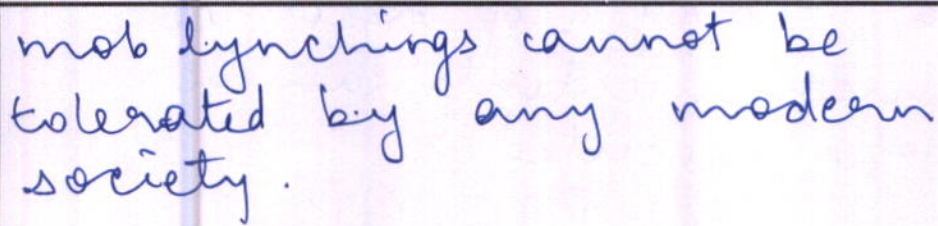 mob lynchings cannot be
tolerated by any modern
society.